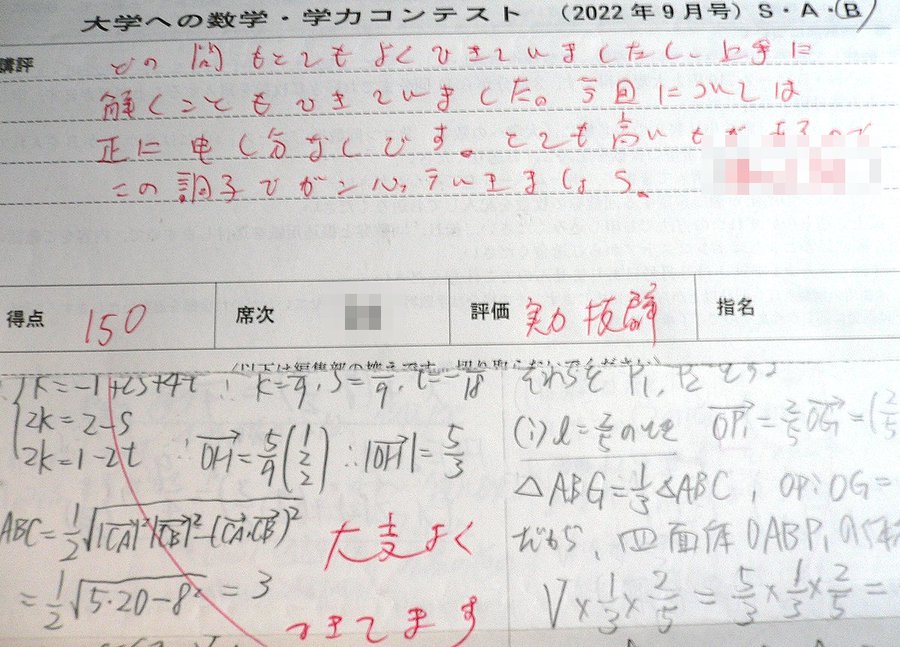 大学への数学・学力コンテスト (2022年9月号) S・A・B
講評
どの問もとてもよくできていましたし、上手に
解くこともできていました。今回については
正に申し分なしです。とても高い
この調子でがんばっていきましょう。
得点 150 席次 評価 実力抜群 指名
(以下は編集部の控えです。切り取らないでください)
K=-1+2S+4t ∴ K=5/9, S=
2K=2-S
2K=1-2t
∴ OH=5/9(1 2 2) ∴ |OH|=5/3
ABC=1/2√|CA|²|CB|²-(CA・CB)²
=1/2√5・20-8² = 3
大変よく
できてます
それらを P₁, P₂ とする
(i) l=2/5 のとき OP₁=2/5 OG=
△ABG=1/3△ABC, OP:OG=
だから、四面体OABP₁の体積
V×1/3×2/5 = 5/3×1/3×2/5 =